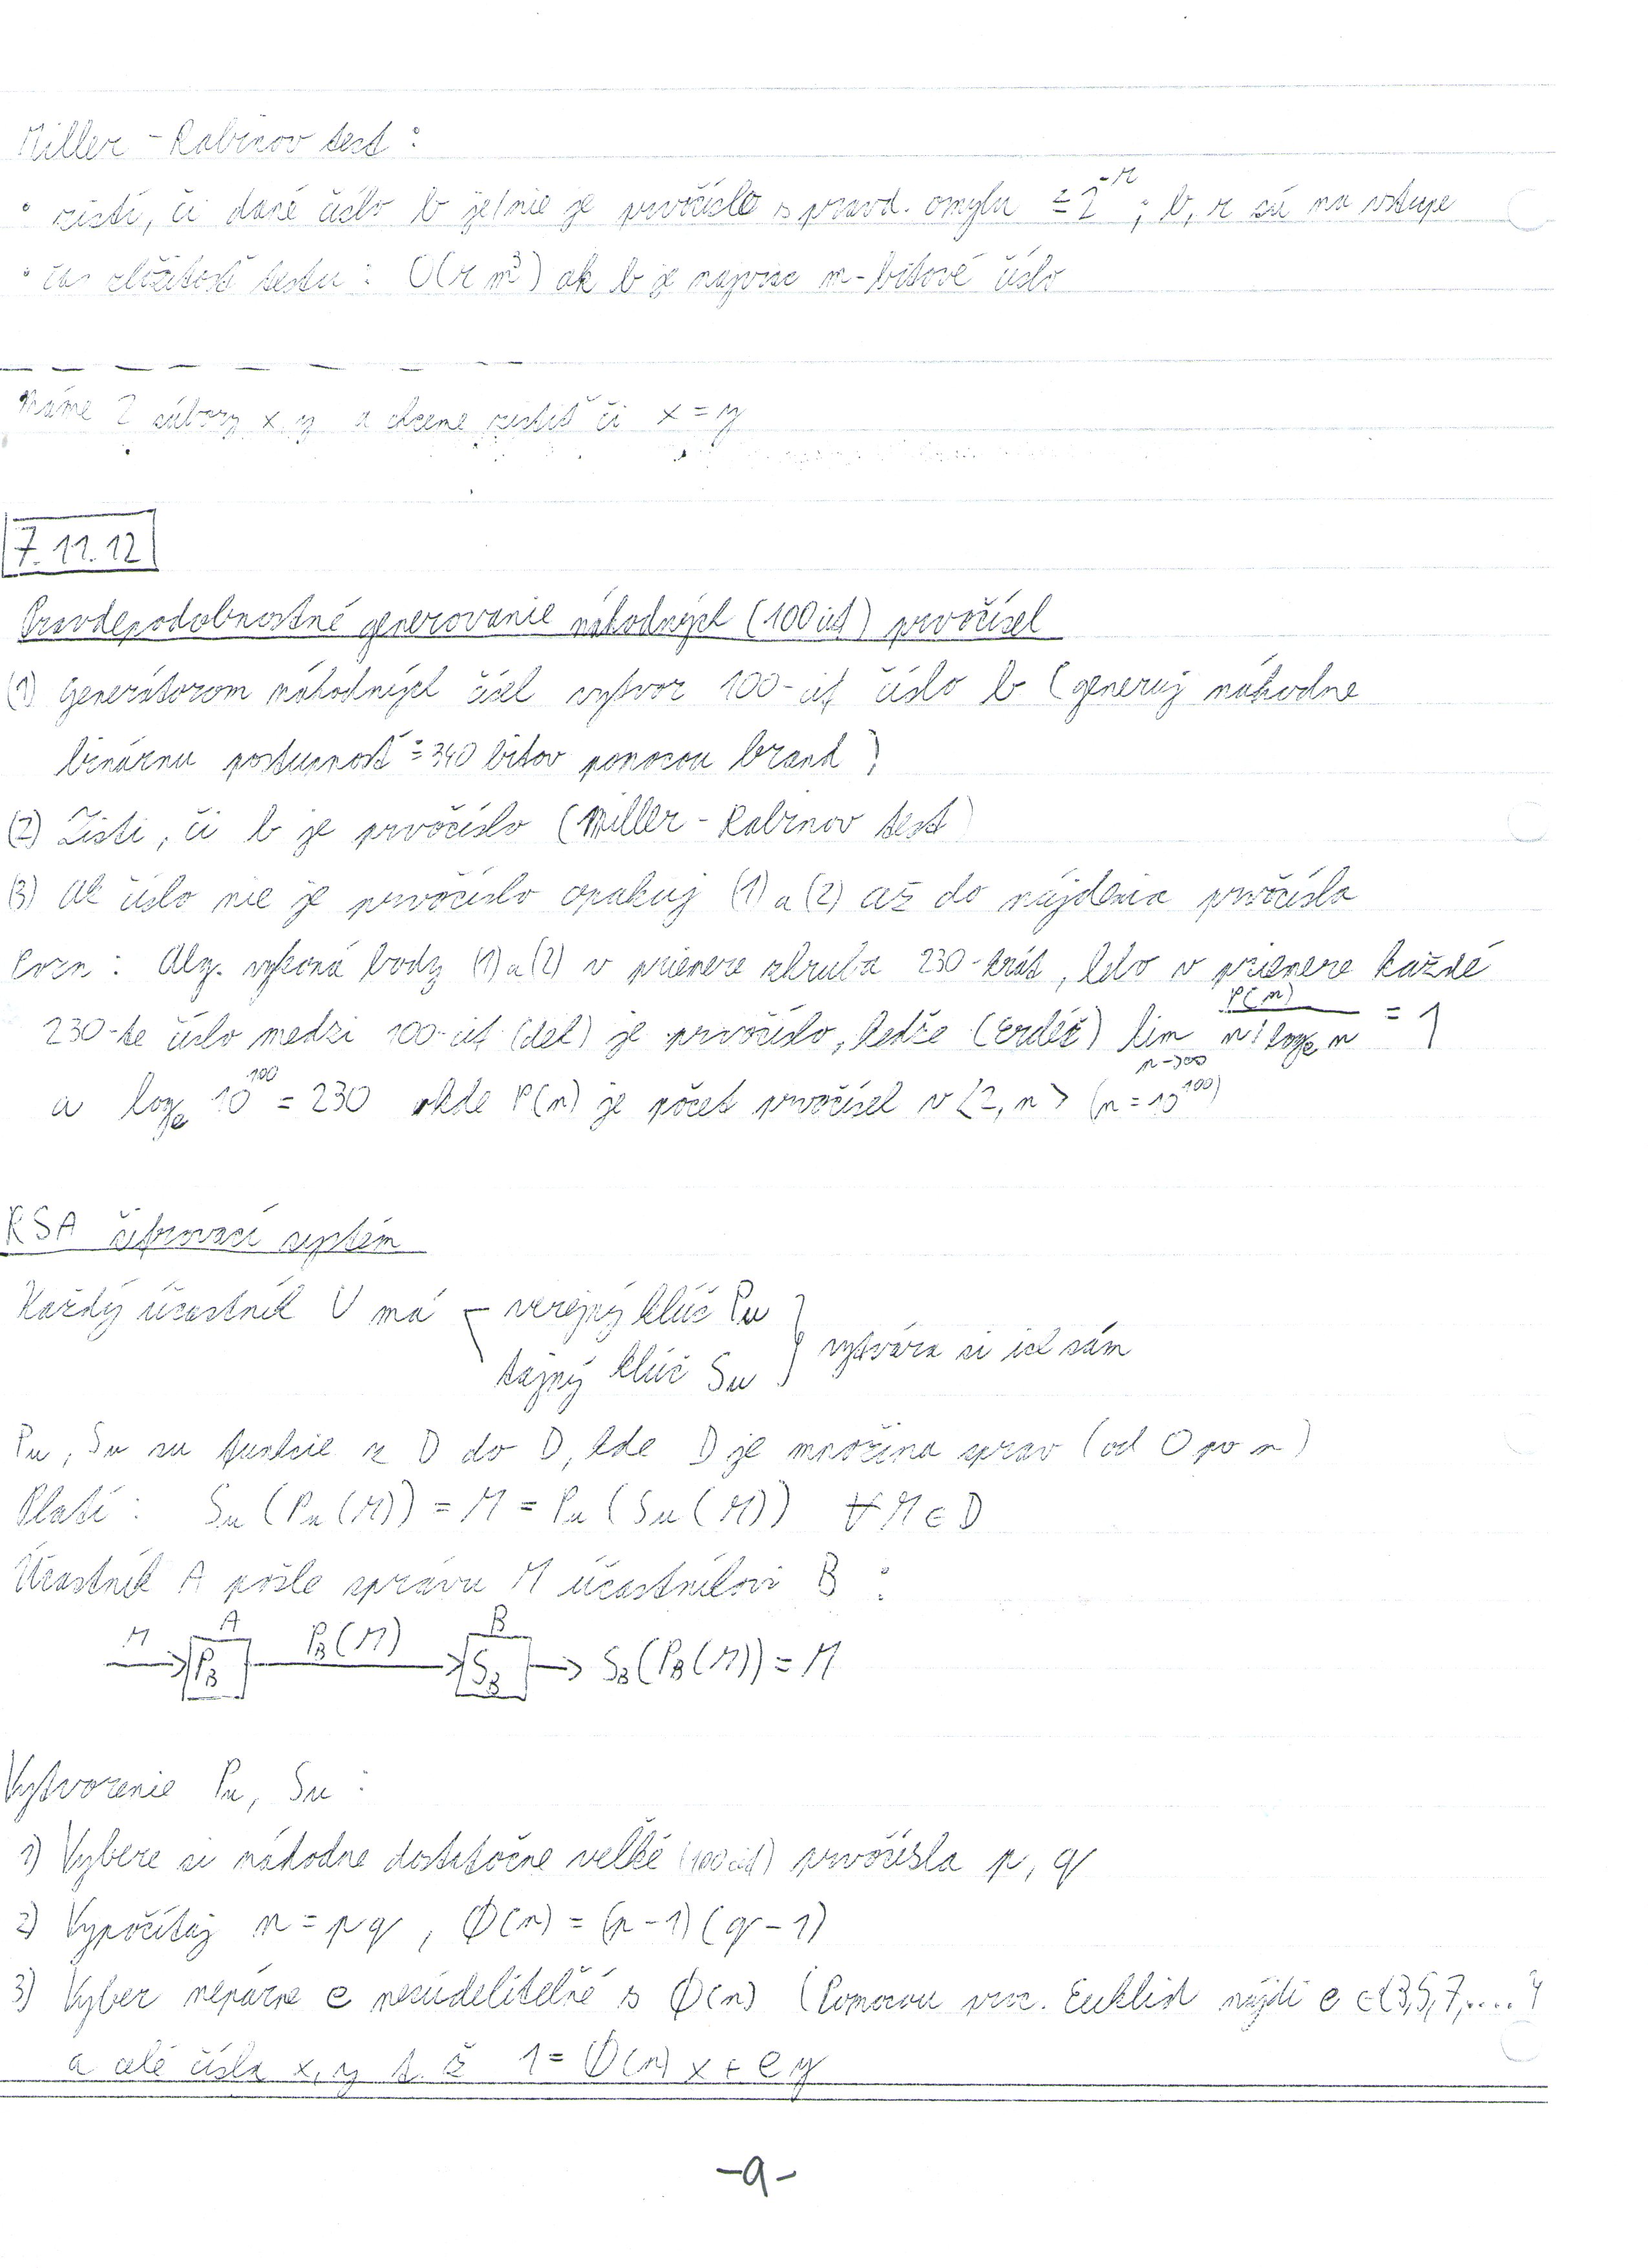 Miller - Rabinov test :
• zistí, či dané číslo b je/nie je prvočíslo s pravd. omylu ≤ 2^-r ; b, r sú na vstupe
• čas zložitosť testu : O(r m³) ak b je najviac m-bitové číslo
Máme 2 súbory x, y a chceme zistiť či x = y
7.11.12
Pravdepodobnostné generovanie náhodných (100 cif) prvočísel
(1) Generátorom náhodných čísel vytvor 100-cif číslo b (generuj náhodne
binárnu postupnosť ≐ 340 bitov pomocou brand)
(2) Zisti, či b je prvočíslo (Miller - Rabinov test)
(3) Ak číslo nie je prvočíslo opakuj (1) a (2) až do nájdenia prvočísla
Pozn : Alg. vykoná body (1) a (2) v priemere zhruba 230-krát, lebo v priemere každé
230-te číslo medzi 100-cif (dek) je prvočíslo, keďže (Erdéš) lim n->∞ P(n) / (n / log_e n) = 1
a log_e 10^100 = 230 kde P(n) je počet prvočísel v <2, n> (n = 10^100)
RSA šifrovací systém
Každý účastník U má verejný kľúč Pu
tajný kľúč Su } vytvára si ich sám
Pu, Su su funkcie z D do D, kde D je množina sprav (od 0 po n)
Platí : Su (Pu (M)) = M = Pu (Su (M)) ∀ M ∈ D
Účastník A pošle správu M účastníkovi B :
M A P_B P_B(M) B S_B -> S_B(P_B(M)) = M
Vytvorenie Pu, Su :
1) Vybere si náhodne dostatočne veľké (100 cif) prvočísla p, q
2) Vypočítaj n = p q , Φ(n) = (p - 1) (q - 1)
3) Vyber nepárne e nesúdeliteľné s Φ(n) (Pomocou roz. Euklid nájdi e ∈ {3,5,7,....}
a celé čísla x, y t. ž 1 = Φ(n) x + e y
-9-